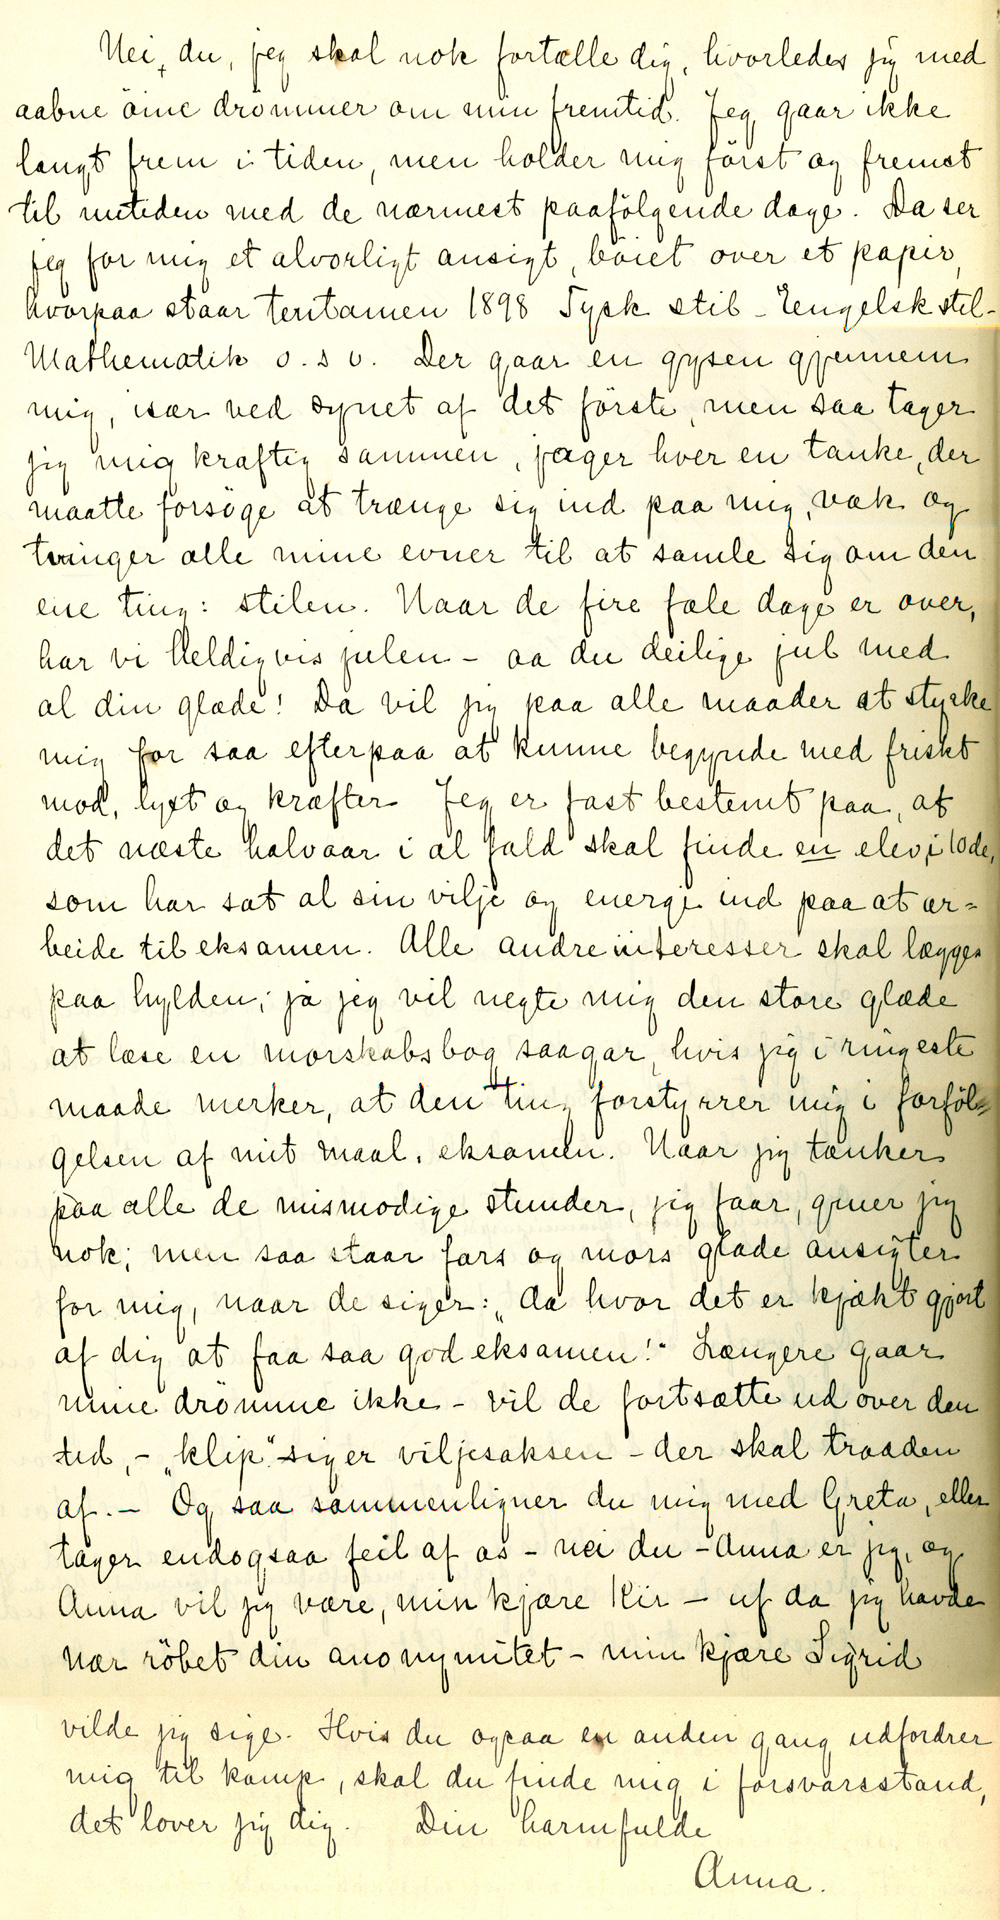 Nei, du, jeg skal nok fortælle dig, hvorledes jeg med
aabne öine drömmer om min fremtid. Jeg gaar ikke
langt frem i tiden, men holder mig först og fremst
til nutiden med de nærmest paafölgende dage. Da ser
jeg for mig et alvorligt ansigt, böiet over et papir,
hvorpaa staar tentamen 1898 Tysk stil – Engelsk stil –
Mathematik o. s v. Der gaar en gysen gjennem
mig, især ved synet af det förste, men saa tager
jeg mig kraftig sammen, jager hver en tanke, der
maatte forsöge at trænge sig ind paa mig, væk og
tvinger alle mine evner til at samle sig om den
ene ting: stilen. Naar de fire fæle dage er over,
har vi heldigvis julen – aa du deilige jul med
al din glæde! Da vil jeg paa alle maader at styrke
mig for saa efterpaa at kunne begynde med friskt
mod, lyst og kræfter Jeg er fast bestemt paa, at
det næste halvaar i al fald skal finde en elev i 10de,
som har sat al sin vilje og energi ind paa at ar=
beide til eksamen. Alle andre interesser skal lægges
paa hylden; ja jeg vil negte mig den store glæde
at læse en morskabsbog saagar, hvis jeg i ringeste
maade merker, at den ting forstyrrer mig i forföl=
gelsen af mit maal, eksamen. Naar jeg tænker
paa alle de mismodige stunder, jeg faar, gruer jeg
nok; men saa staar fars og mors glade ansigter
for mig, naar de siger: „Aa hvor det er kjækt gjort
af dig at faa saa god eksamen!" Længere gaar
mine drömme ikke – vil de fortsætte ud over den
tid, – „klip" siger viljesaksen – der skal traaden
af. – Og saa sammenligner du mig med Greta, eller
tager endogsaa feil af os – nei du – Anna er jeg, og
Anna vil jeg være, min kjære Kir – uf da jeg havde
nær röbet din anonymitet – min kjære Sigrid
vilde jeg sige. Hvis du ogsaa en anden gang udfordrer
mig til kamp, skal du finde mig i forsvarsstand,
det lover jeg dig. Din harmfulde
Anna.